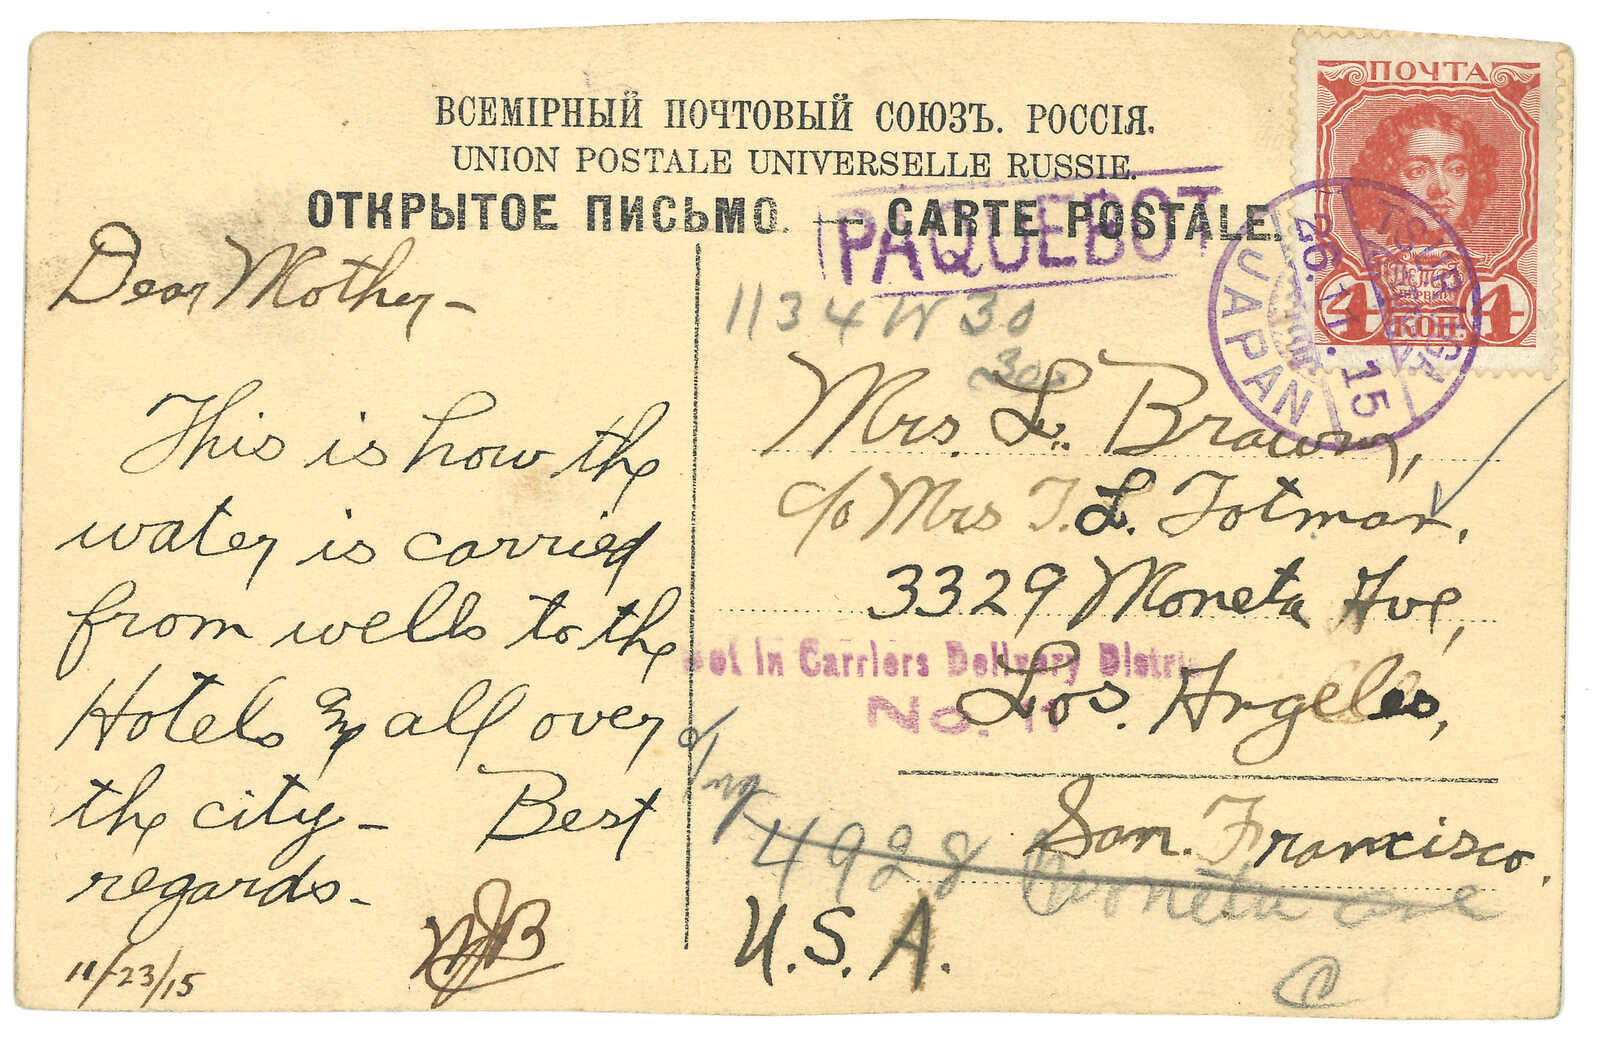 ВСЕМІРНЫЙ ПОЧТОВЫЙ СОЮЗЪ. РОССІЯ.
UNION POSTALE UNIVERSELLE RUSSIE.
ОТКРЫТОЕ ПИСЬМО. — CARTE POSTALE.
PAQUEBOT
ПОЧТА
4 КОП. 4
TSURUGA
26.11.15
JAPAN
Dear Mother –
This is how the
water is carried
from wells to the
Hotels & all over
the city – Best
regards –
WJB
11/23/15
1134 W 30
Mrs. L. Brown,
c/o Mrs T. L. Totman,
3329 Moneta Ave,
Los. Angeles,
San. Francisco.
U.S.A.
Not in Carriers Delivery District
No. 11
4928 Moneta ave
C